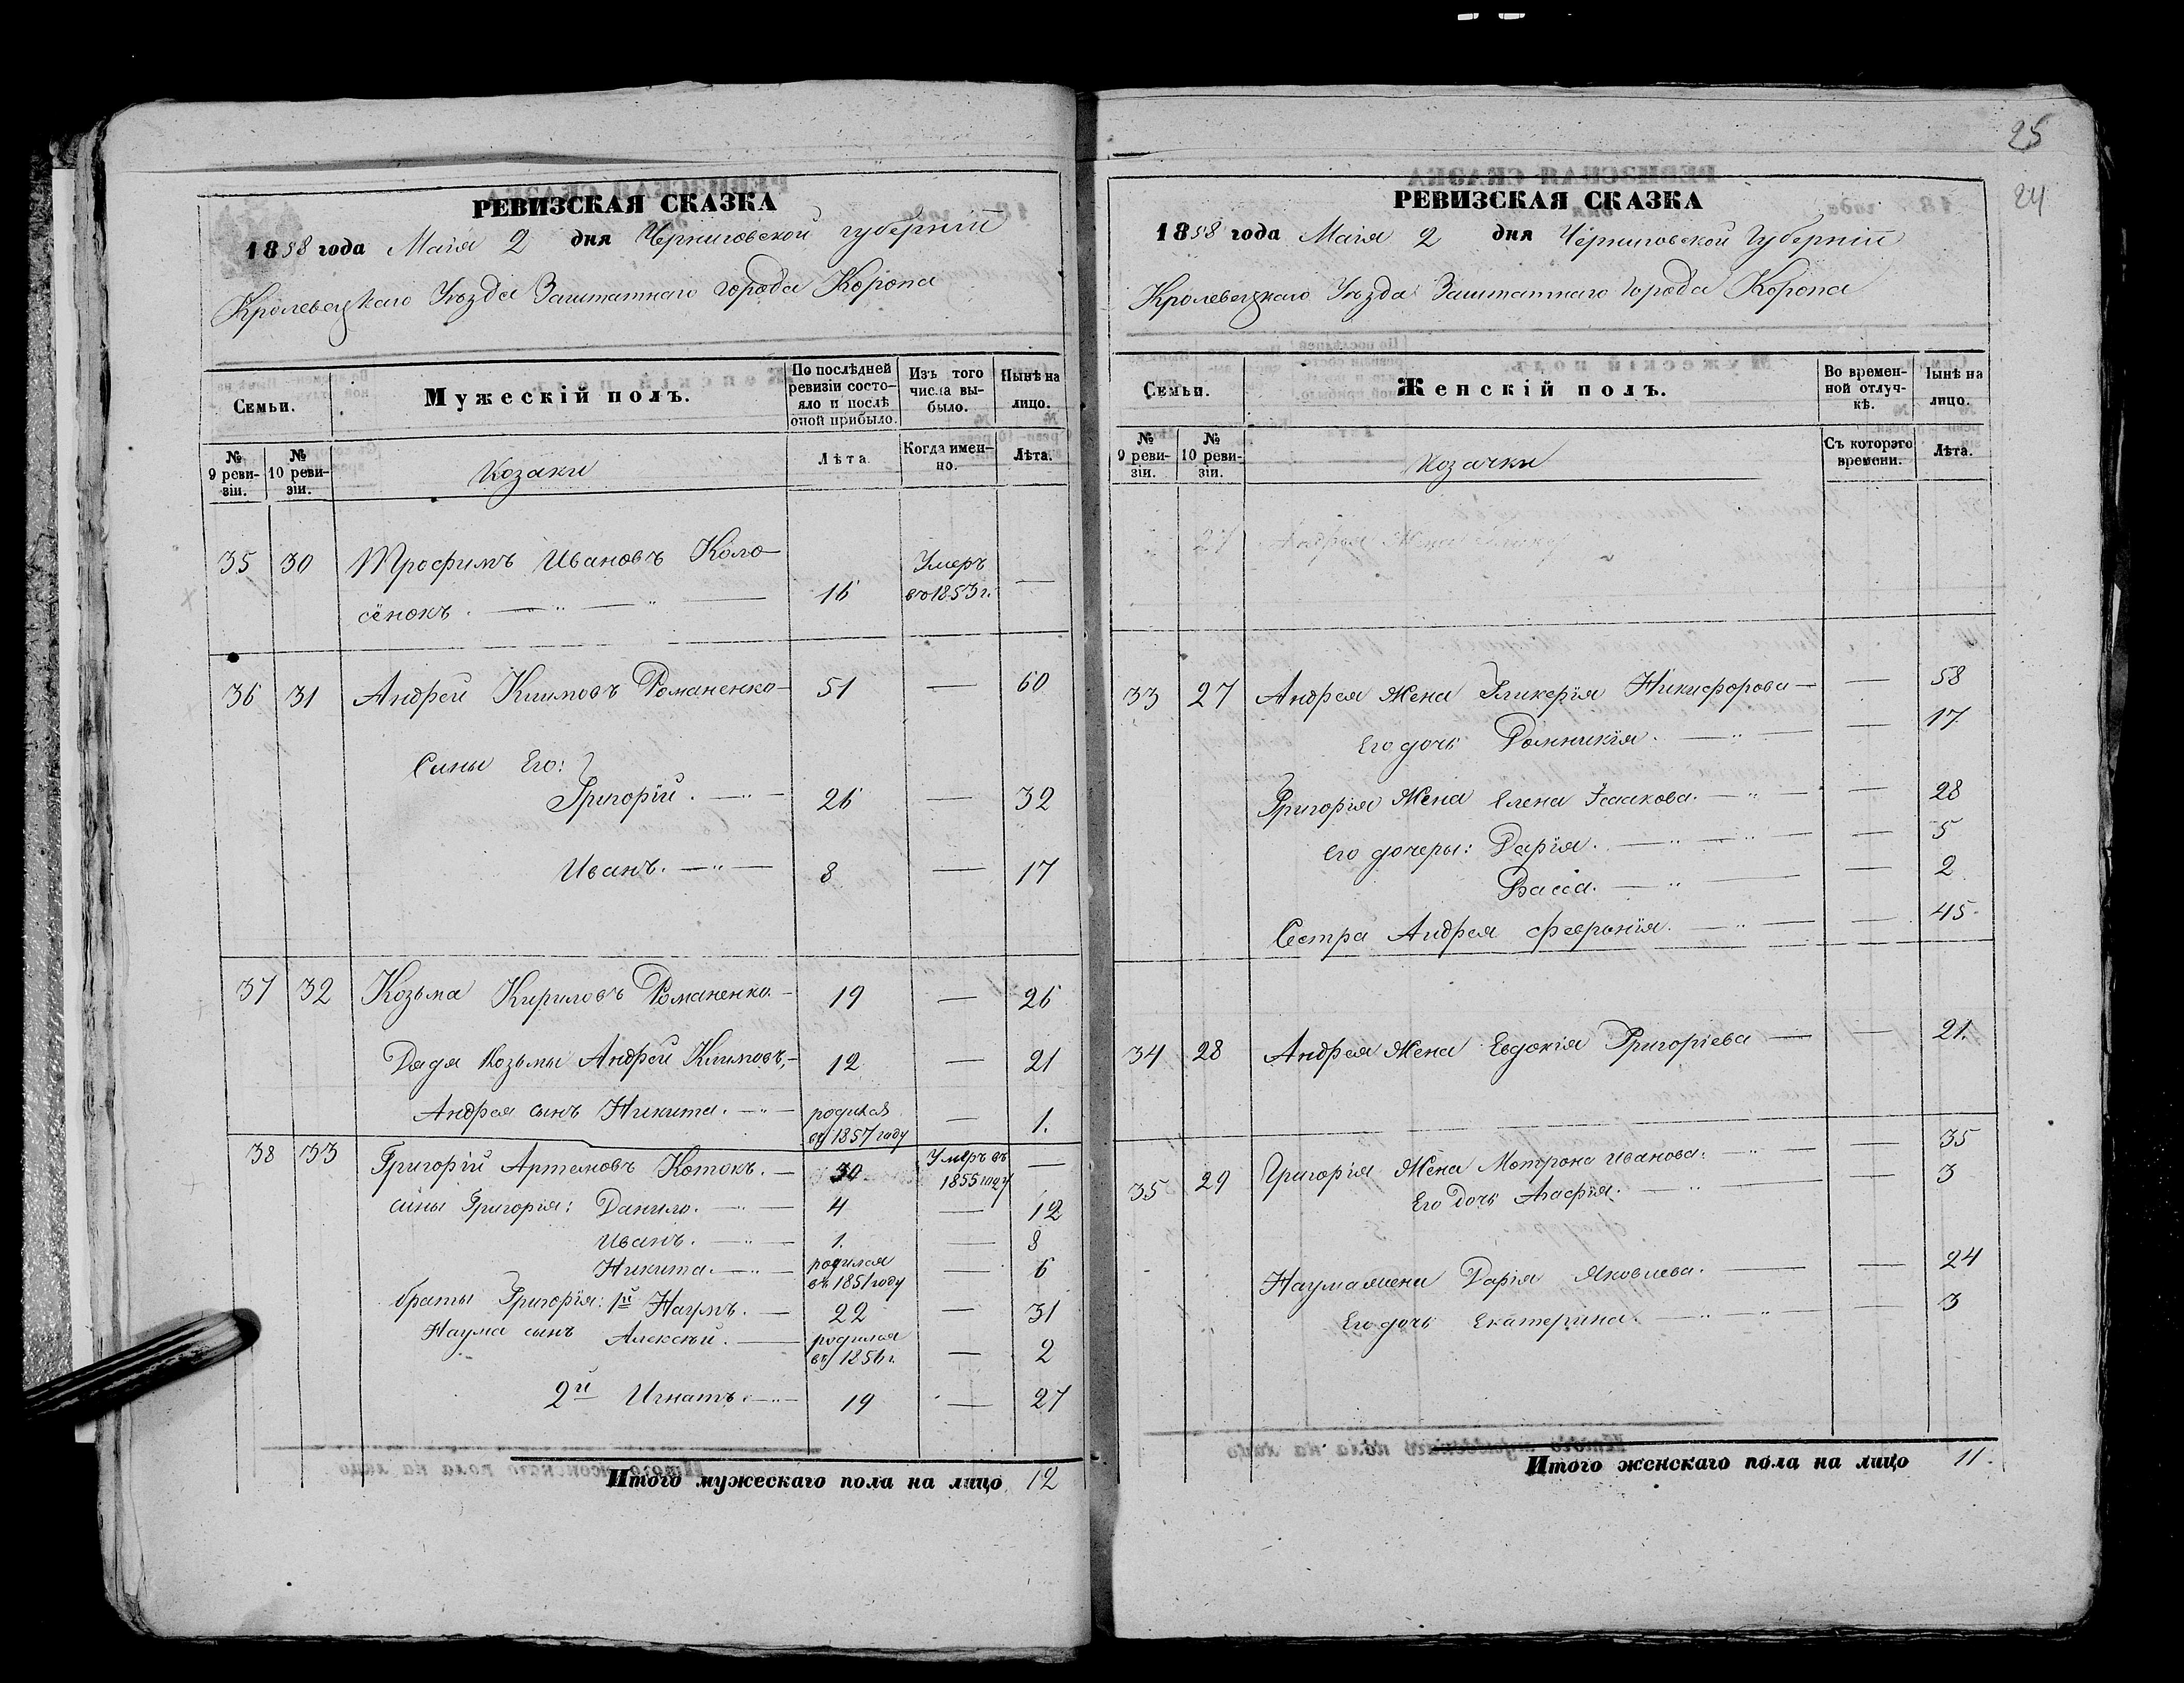 РЕВИЗСКАЯ СКАЗКА
1858 года Маія 2 дня Черниговской губерніи
Кролевецкаго Уѣзда Заштатнаго города Коропа
Семьи.
Мужескій полъ.
По послѣдней ревизіи состо-
яло и послѣ
оной прибыло.
Изъ того
числа вы-
было.
Нынѣ на
лицо.
№
9 реви-
зіи.
№
10 реви-
зіи.
Козаки
Лѣта.
Когда имен-
но.
Лѣта.
35 30 Трофимъ Ивановъ Коло-
сёнокъ. 16 Умеръ
въ 1853 г. —
36 31 Андрей Климовъ Романенко — 51 — 60
Сины Его:
Григорій. — 26 — 32
Иванъ. — 8 — 17
37 32 Козьма Кириловъ Романенко. — 19 — 26
Дядя Козьмы Андрей Климовъ, — 12 — 21
Андрея сынъ Никита. — родился
въ 1857 году — 1.
38 33 Григорій Артемовъ Котокъ. — 30 Умеръ въ
1855 году —
сины Григорія: Данило. — 4 — 12
Иванъ. — 1. — 8
Никита. — родился
въ 1851 году — 6
браты Григорія: 1й Наумъ. — 22 — 31
Наума сынъ Алексѣй. — родился
въ 1856 г. — 2
2й Игнатъ. — 19 — 27
Итого мужескаго пола на лицо 12
25
24
РЕВИЗСКАЯ СКАЗКА
1858 года Маія 2 дня Черниговской Губерніи
Кролевецкаго Уѣзда Заштатнаго города Коропа
Семьи.
Женскій полъ.
Во времен-
ной отлуч-
кѣ.
Нынѣ на
лицо.
№
9 реви-
зіи.
№
10 реви-
зіи.
Козачки
Съ котораго
времени.
Лѣта.
27 Андрея Жена
33 27 Андрея Жена Гликерія Никифорова — — 58
Его дочь Домникія. — — 17
Григорія Жена Елена Ісаакова. — — 28
Его дочеры: Дарія. — — 5
Васса. — — 2
Сестра Андрея Феѳронія. — — 45
34 28 Андрея Жена Евдокія Григоріева — — 21.
35 29 Григорія Жена Мотрона Иванова. — — 35
Его Дочь Агафія. — 3
Наума жена Дарія Яковлева. — — 24
Его дочь Екатерина. — — 3
Итого женскаго пола на лицо 11.